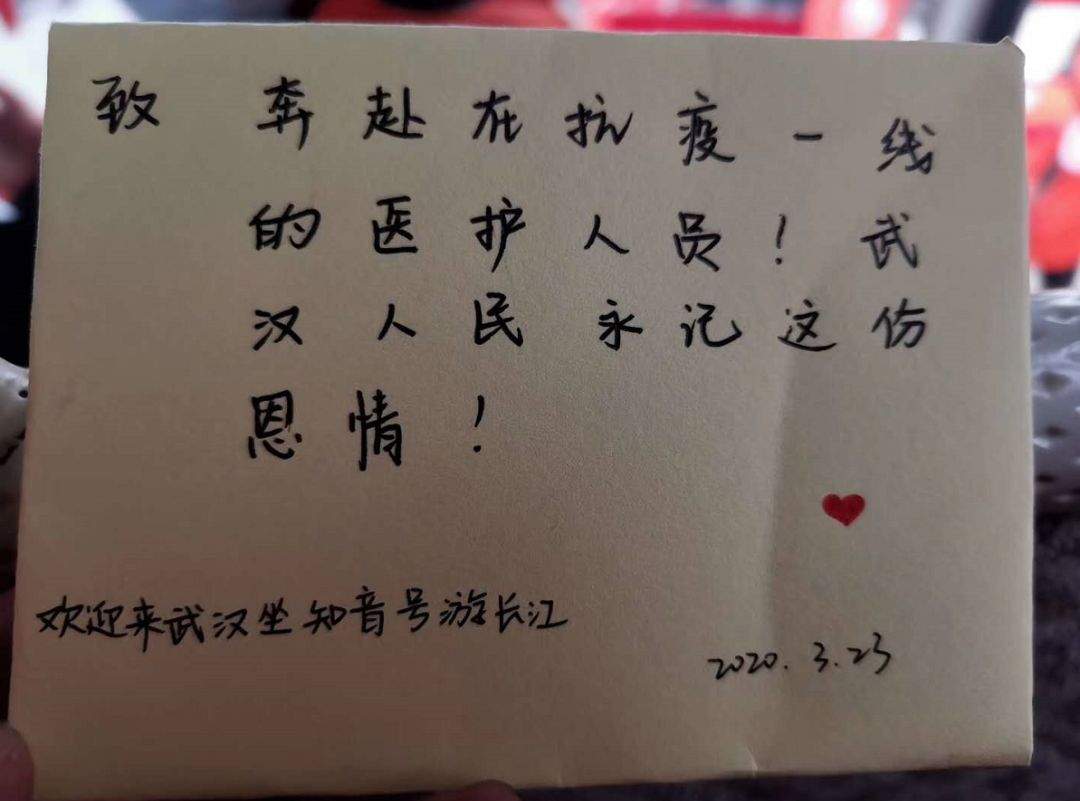 致 奔赴在抗疫一线
的医护人员！武
汉人民永记这份
恩情！
欢迎来武汉坐知音号游长江
2020.3.23